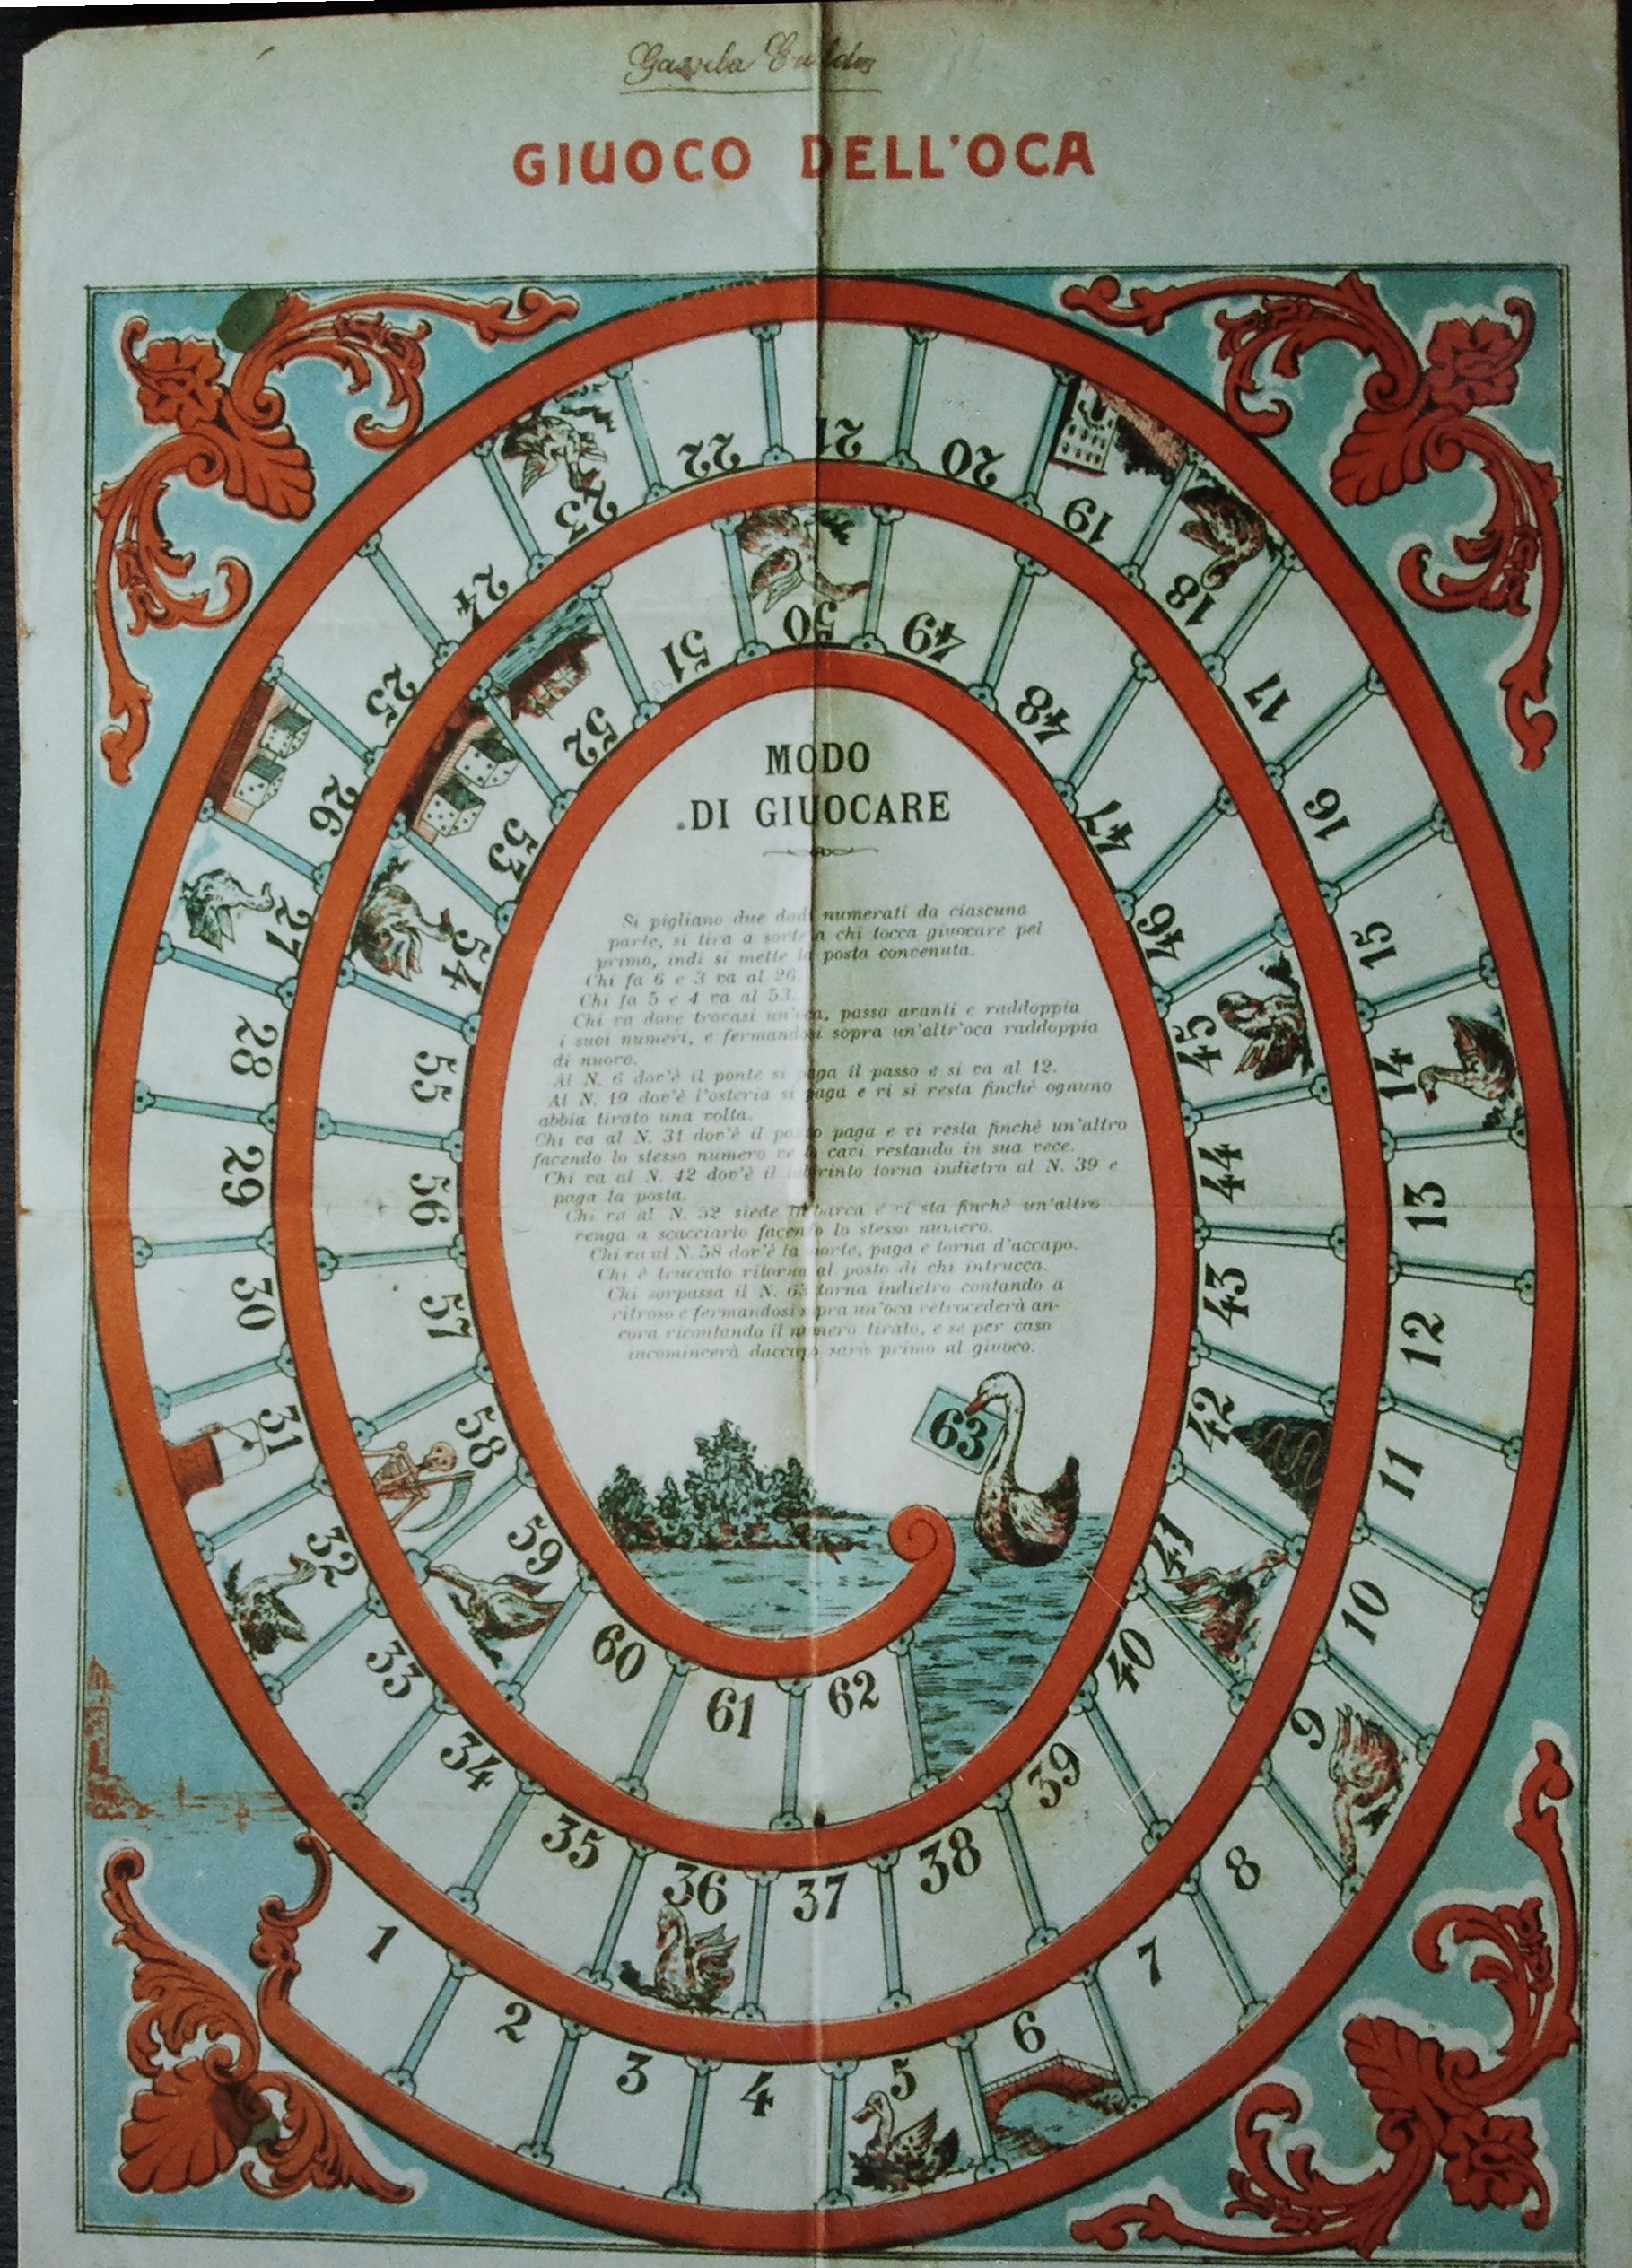 GIUOCO DELL'OCA
MODO
DI GIUOCARE
Si pigliano due dadi numerati da ciascuna
parte, si tira a sorte a chi tocca giuocare pel
primo, indi si mette la posta concenuta.
Chi fa 6 e 3 va al 26.
Chi fa 5 e 4 va al 53.
Chi va dove trovasi un'oca, passa avanti e raddoppia
i suoi numeri, e fermandosi sopra un'altr'oca raddoppia
di nuovo.
Al N. 6 dov'è il ponte si paga il passo e si va al 12.
Al N. 19 dov'è l'osteria si paga e vi si resta finchè ognuno
abbia tirato una volta.
Chi va al N. 31 dov'è il pozzo paga e vi resta finchè un'altro
facendo lo stesso numero ve lo cavi restando in sua vece.
Chi va al N. 42 dov'è il labirinto torna indietro al N. 39 e
paga la posta.
Chi va al N. 52 siede in barca e vi sta finchè un'altro
venga a scacciarlo facendo lo stesso numero.
Chi va al N. 58 dov'è la morte, paga e torna d'accapo.
Chi è truccato ritorna al posto di chi intrucca.
Chi sorpassa il N. 63 torna indietro contando a
ritroso e fermandosi sopra un'oca retrocederà an-
cora ricontando il numero tirato, e se per caso
incomincerà daccapo sarà primo al giuoco.
1
2
3
4
5
6
7
8
9
10
11
12
13
14
15
16
17
18
19
20
21
22
23
24
25
26
27
28
29
30
31
32
33
34
35
36
37
38
39
40
41
42
43
44
45
46
47
48
49
50
51
52
53
54
55
56
57
58
59
60
61
62
63